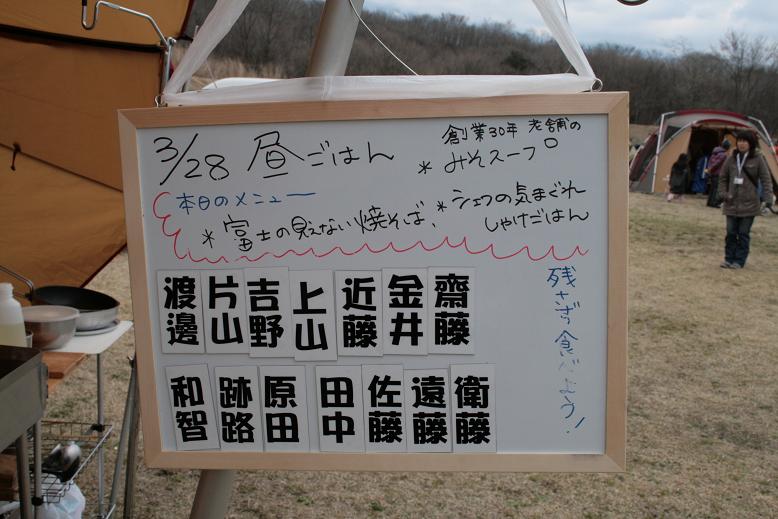 3/28 昼ごはん
本日のメニュー
＊富士の見えない焼そば、
＊シェフの気まぐれ
しゃけごはん
創業30年 老舗の
＊みそスープ
残さず食べよう！
渡邊 片山 吉野 上山 近藤 金井 齋藤
和智 跡路 原田 田中 佐藤 遠藤 衛藤